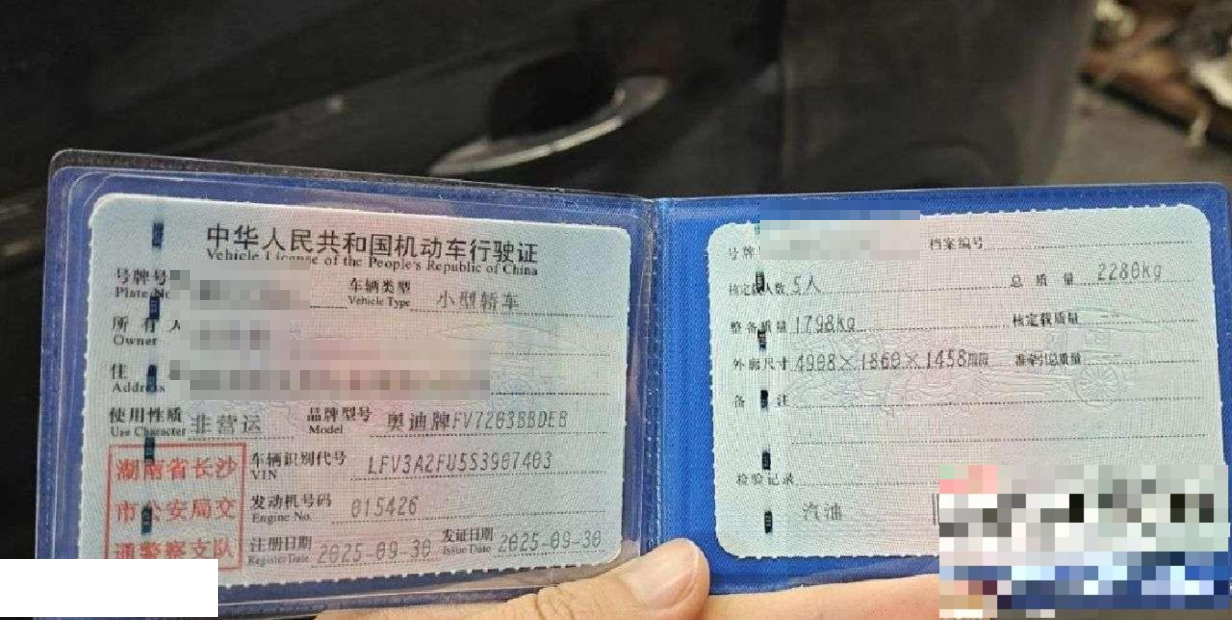 中华人民共和国机动车行驶证
Vehicle License of the People's Republic of China
号牌号
Plate No
车辆类型 小型轿车
Vehicle Type
所有人
Owner
住
Address
使用性质 非营运
Use Character
品牌型号 奥迪牌FV7203BBDEB
Model
车辆识别代号 LFV3A2FU5S3907403
VIN
发动机号码 015426
Engine No.
注册日期 2025-09-30
Register Date
发证日期 2025-09-30
Issue Date
湖南省长沙
市公安局交
通警察支队
号牌
档案编号
核定载人数 5人
总质量 2280kg
整备质量 1798kg
核定载质量
外廓尺寸 4908×1860×1458
准牵引总质量
备注
检验记录
汽油